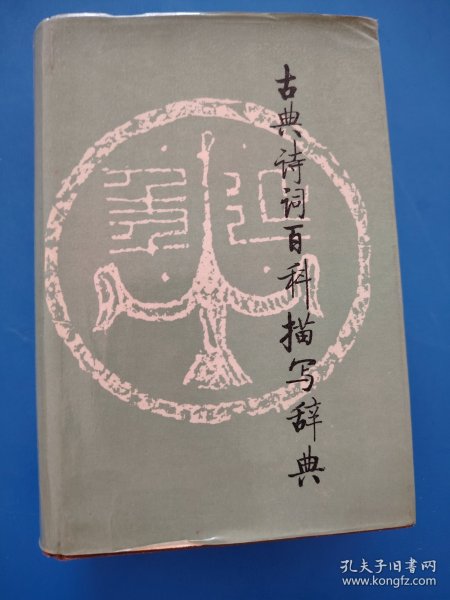 古典诗词百科描写辞典
孔夫子旧书网
www.kongfz.com